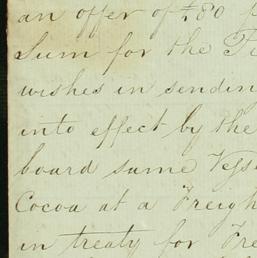 an offer of £80
Sum for the
wishes in sendin
into effect by the
board same Vess
Cocoa at a Freigh
in treaty for Fre